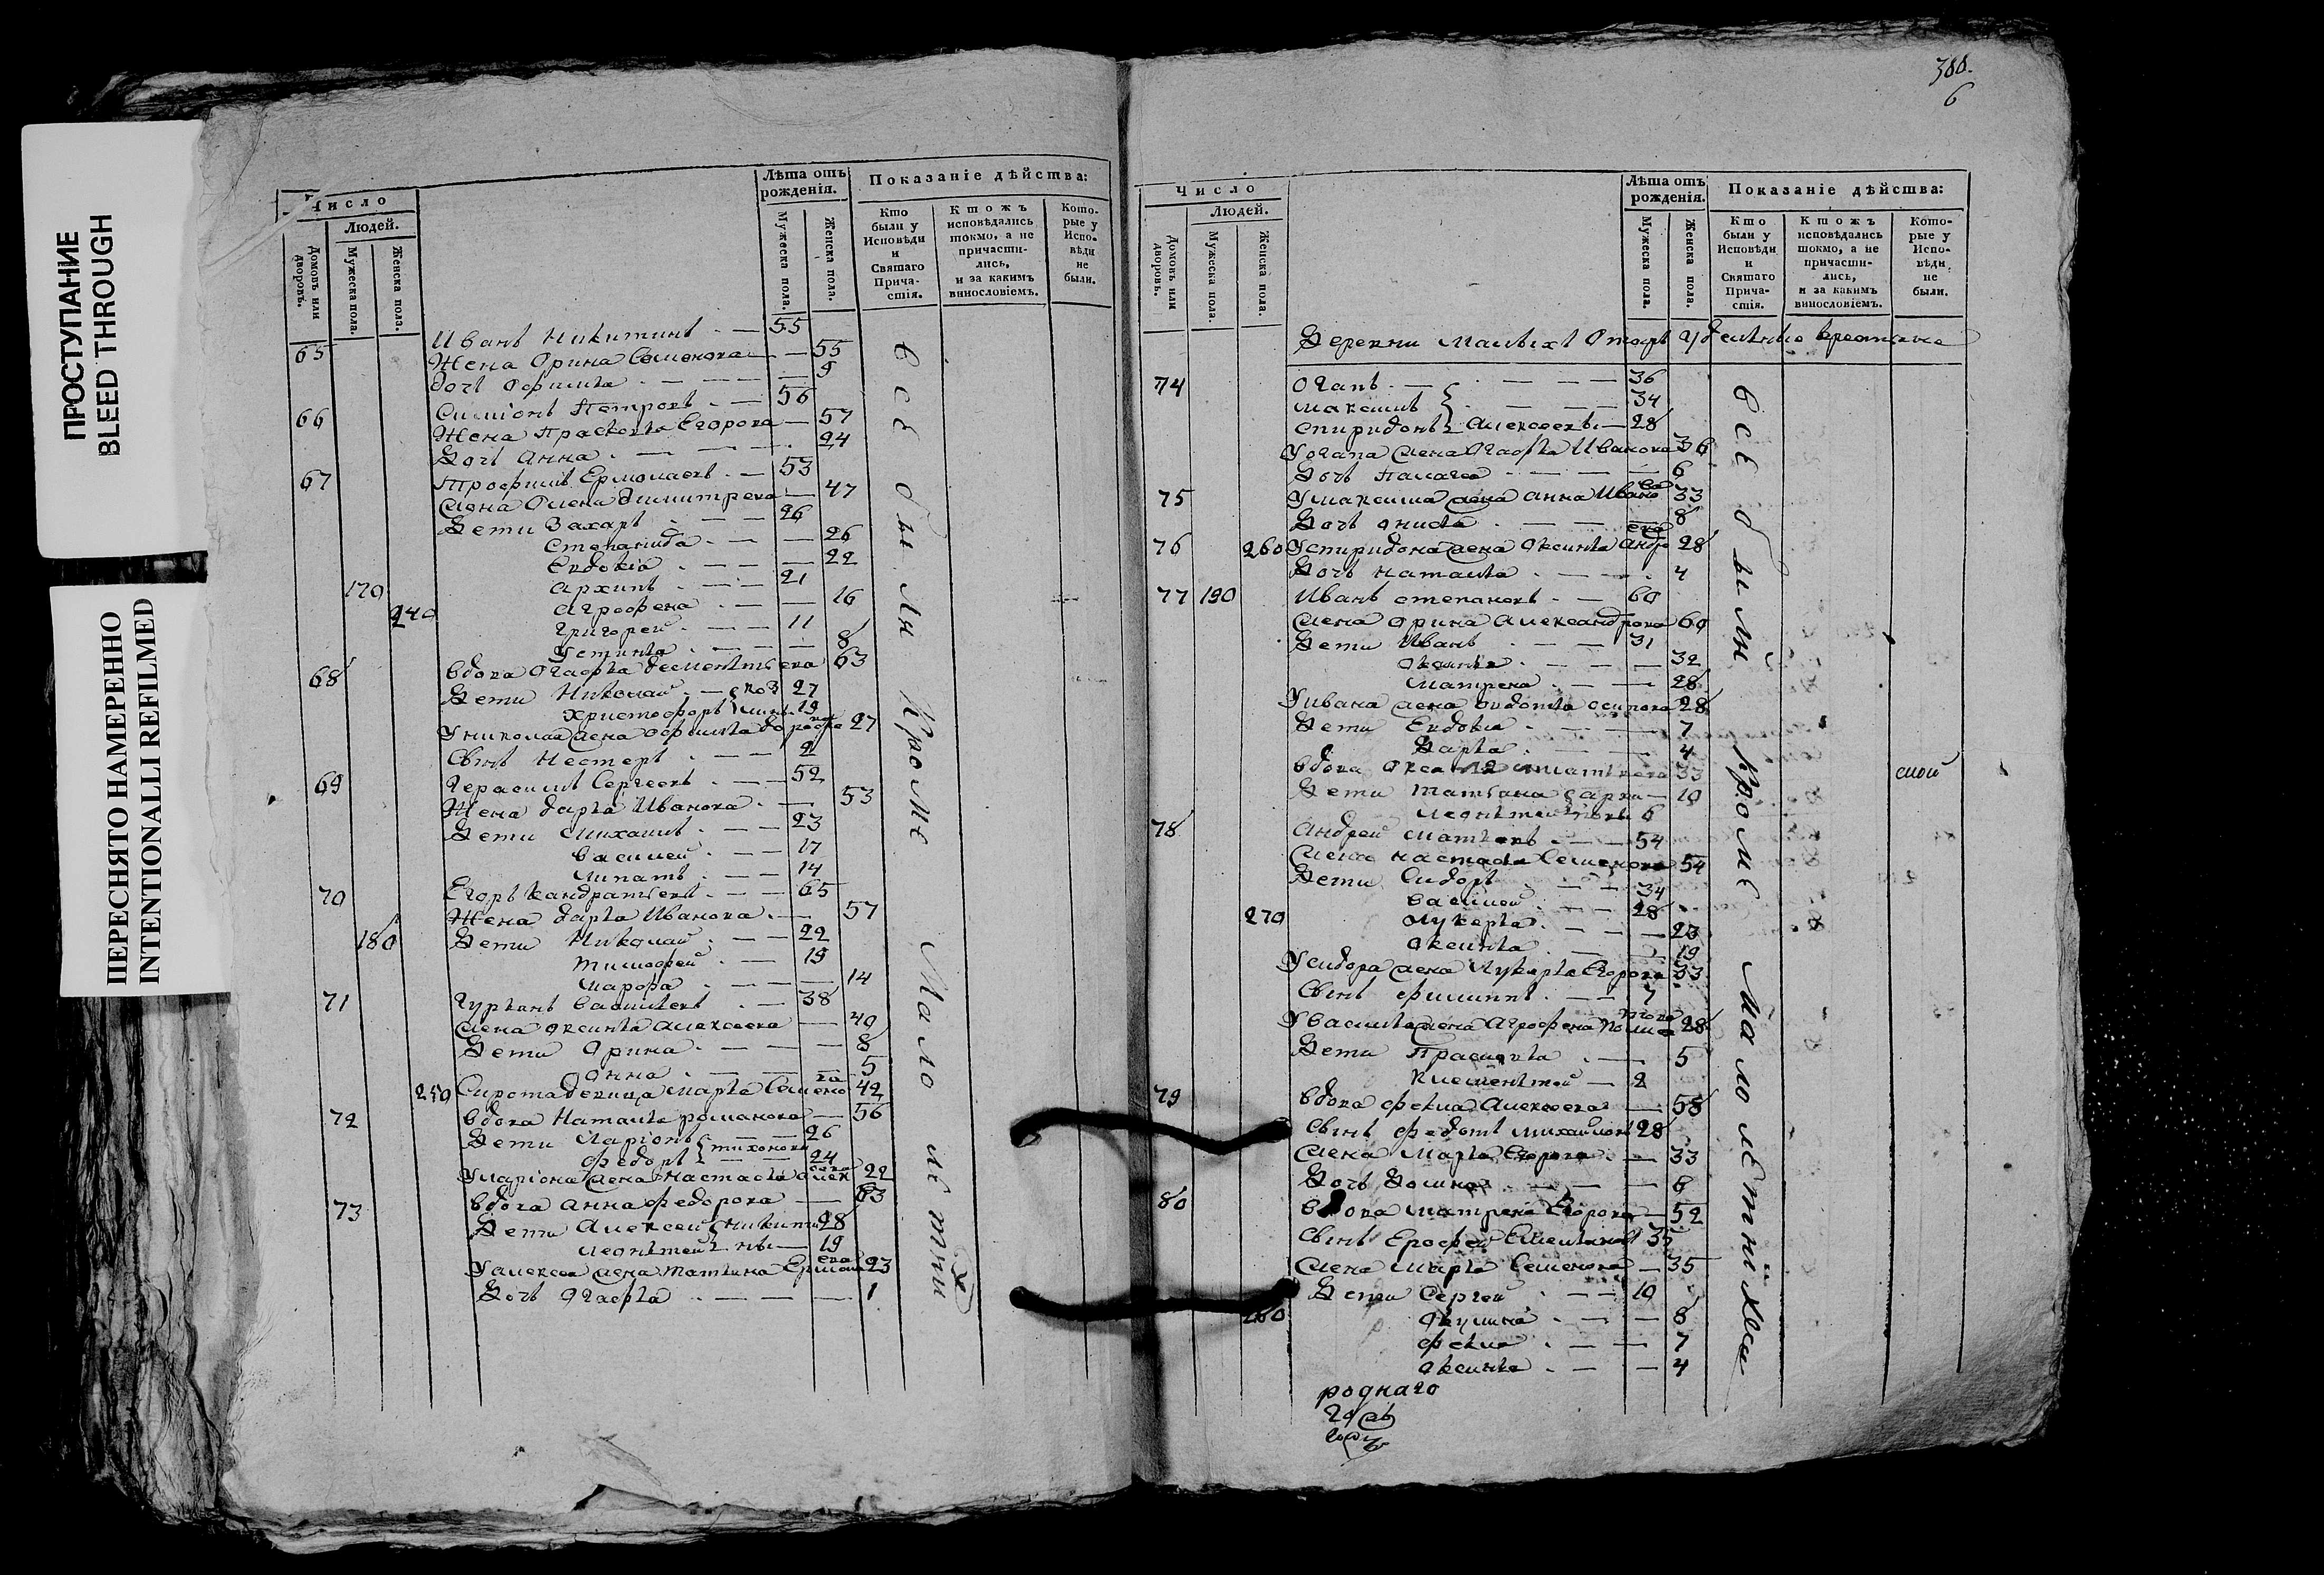 ПРОСТУПАНИЕ
BLEED THROUGH
ПЕРЕСНЯТО НАМЕРЕННО
INTENTIONALLI REFILMED
Число
Людей.
Домовъ или дворовъ.
Мужеска пола.
Женска пола.
Лѣта отъ рожденія.
Мужеска пола.
Женска пола.
Показаніе дѣйства:
Кто были у Исповѣди и Святаго Причастія.
Ктожъ исповѣдались токмо, а не причастились, и за какимъ винословіемъ.
Которые у Исповѣди не были.
65 Иванъ Никитинъ 55
Жена Орина Семенова 55
дочь Офимья 9
66 Симіонъ Петровъ 56
Жена Прасковья Егорова 57
Дочь Анна 24
67 Трофимъ Ермолаевъ 53
жена Олена Димитрева 47
Дети Захаръ 26
Степанида 26
Евдокіа 22
170 Архипъ 21
240 Агрофена 16
Григорей 11
Устинья 8
68 вдова Огафья дементьева 63
Дети Николай 27
Христофоръ 19
У николая жена Офимья 27
Сынъ Нестеръ 2
69 Герасимъ Сергеевъ 52
Жена дарья Иванова 53
Дети Михаилъ 23
Василей 17
Липатъ 14
70 Егоръ Кандратьевъ 65
Жена дарья Иванова 57
180 Дети Николай 22
Тимофей 19
Марфа 14
71 Гурьянъ Васильевъ 38
жена Оксинья Алексеева 40
Дети Орина 8
Анна 5
250 Сирота девица Марья Семенова 42
72 вдова Наталья романова 56
Дети Ларіонъ 26
Федоръ тихоновы 24
У ларіона жена Настасья 22
73 вдова Анна федорова 63
Дети Алексей Никитины 28
Леонтей 19
У алексея жена татьяна 23
Дочь Огафья 1
все были кроме малолетних
388.
6
Число
Людей.
Домовъ или дворовъ.
Мужеска пола.
Женска пола.
Лѣта отъ рожденія.
Мужеска пола.
Женска пола.
Показаніе дѣйства:
Кто были у Исповѣди и Святаго Причастія.
Ктожъ исповѣдались токмо, а не причастились, и за какимъ винословіемъ.
Которые у Исповѣди не были.
Деревни Малыхъ
74 Огапъ 36
Максимъ 34
Спиридонъ Алексеевы 28
У огапа жена Огафья Иванова 36
Дочь Палагея 6
75 У максима жена анна Иванова 33
Дочь 8
76 260 У спиридона жена Оксинья 28
Дочь Наталья 4
77 190 Иванъ степановъ 60
жена Орина Александрова 60
Дети Иванъ 31
Оксинья 32
Матрена 28
У ивана жена осипова 28
Дети Евдокia 7
Дарья 4
вдова 33
Дети татьяна 10
6
78 Андрей Матвеевъ 54
жена настасья Семенова 54
Дети Сидоръ 34
Василей 28
270 Лукерья 23
Оксинья 19
У сидора жена Лукерья Егорова 33
Сынъ филиппъ 7
У василья жена Агрофена 28
Дети Прасковья 5
Клементей 2
79 вдова фекла Алексеева 58
Сынъ федотъ михайловъ 28
жена Марья Егорова 33
Дочь Домна 6
80 вдова матрена Егорова 52
Сынъ Ерофей
жена Марья Семенова 35
Дети Сергей 10
280 Окулина 8
фекла 7
Оксинья 4
все были кроме малолетних
роднаго